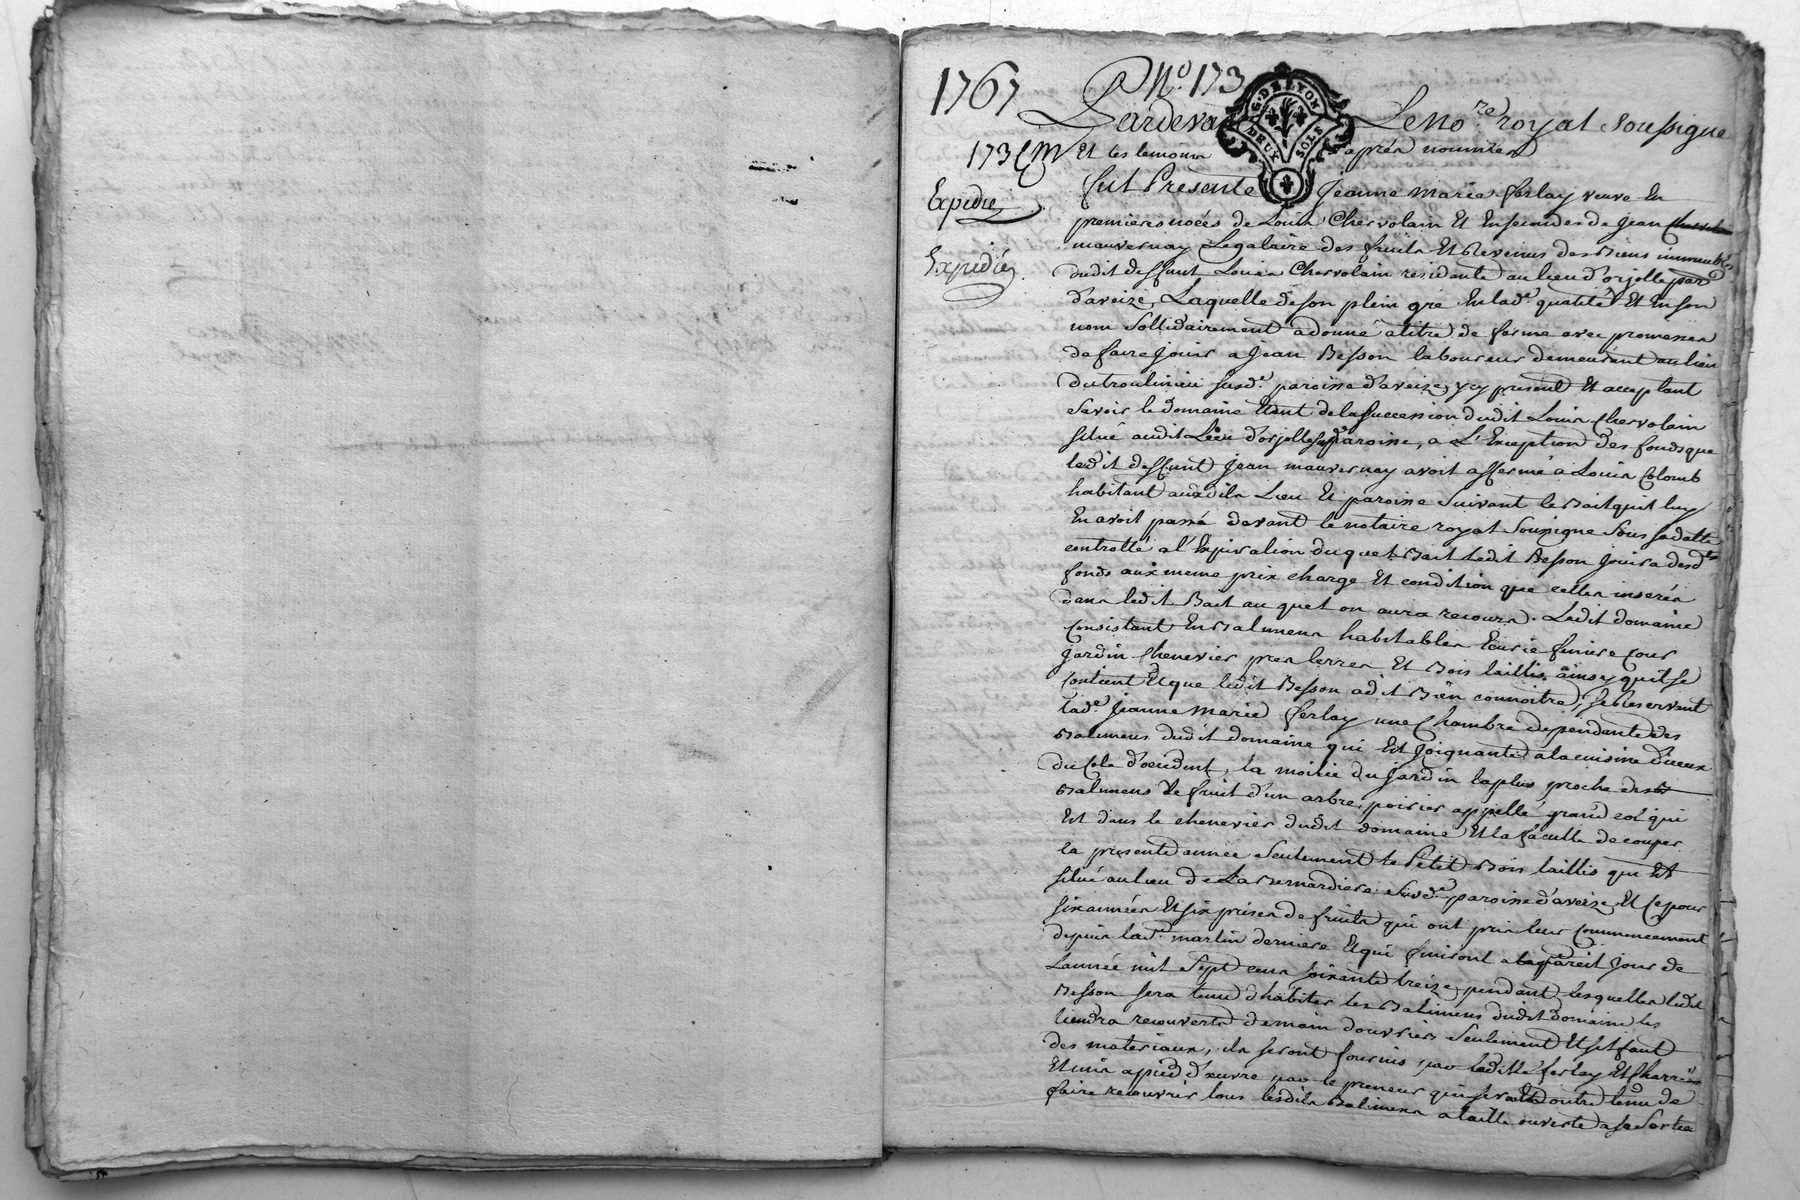 1767
N.o 173
G. DE LYON
DEUX SOLS
Pardeva Le no.re royal soussigne
173 Et les temoins après nommes
Expedié
Fut Presente Jeanne Marie Ferlay veuve En
premieres noces de Louis Chervolain Et En secondes de Jean
mauvernay Legataire des fruits Et Revenus des Biens immeubles
Expedié
dudit deffunt Louis Chervolain residante au lieu d'orjolle par.
d'aveize, Laquelle de son plein gré En lad.e qualité Et En son
nom Sollidairement a donné a titre de ferme avec promesses
de faire Jouir a Jean Besson laboureur demeurant au lieu
du troulinieu susd.e paroisse d'aveize, y cy present Et acceptant
Savoir le domaine Etant de la Succession dudit Louis Chervolain
situé audit Lieu d'orjolle paroisse, a L'Exception des fonds que
ledit deffunt Jean mauvernay avoit affermé a Louis Colomb
habitant auxdits Lieu Et paroisse Suivant le Bail quil luy
En avoit passé devant le notaire royal Soussigne Sous sa datte
controllé a l'Expiration duquel Bail ledit Besson Jouira desd.ts
fonds aux meme prix charge Et condition que celles inserés
dans ledit Bail au quel on aura recours. Ledit domaine
Consistant En Batimens habitables Ecurie feniere Cour
Jardin Chenevier pres terres Et Bois taillis, ainsy quil se
Contient Et que ledit Besson a dit Bien connoitre, se Reservant
lad.e Jeanne Marie Ferlay une Chambre dependante des
Batimens dudit domaine qui Est Joignante a la cuisine d'iceux
du Coté d'occident, la moitié du Jardin la plus proche des
Batimens Le fruit d'un arbre poirier appellé grand col qui
Est dans le chenevier dudit domaine Et la faculté de couper
la presente année Seulement le Petit Bois taillis qui Est
situé au lieu de La Bernardiere Susd.e paroisse d'aveize, Et Ce pour
six années Et six prises de fruits qui ont pris leur Commencement
depuis la St. martin derniere Et qui finiront a pareil Jour de
Lannée mil Sept cens soixante treize, pendant lesquelles ledit
Besson sera tenu d'habiter les Batimens dudit domaine les
tiendra recouverts de main d'ouvriers Seulement Et s'il faut
des materiaux, ils seront fournis par laditte ferlay Et Charriés
Et mis a pied d'œuvre par le preneur qui sera En outre tenu de
faire recouvrir tous lesdits Batimens a taille ouverte a sa Sortie